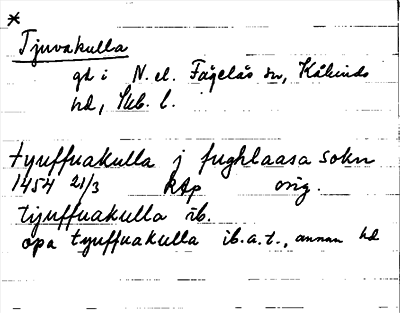 *
Tjuvakulla
gd i N. el. Fågelås sn, Kåkinds
hd, Skb. l.
tyuffuakulla j fughlaasa sokn
1454 21/3 RAp orig.
tijuffuakulla ib.
öpa tyuffuakulla ib. a. t., annan hd